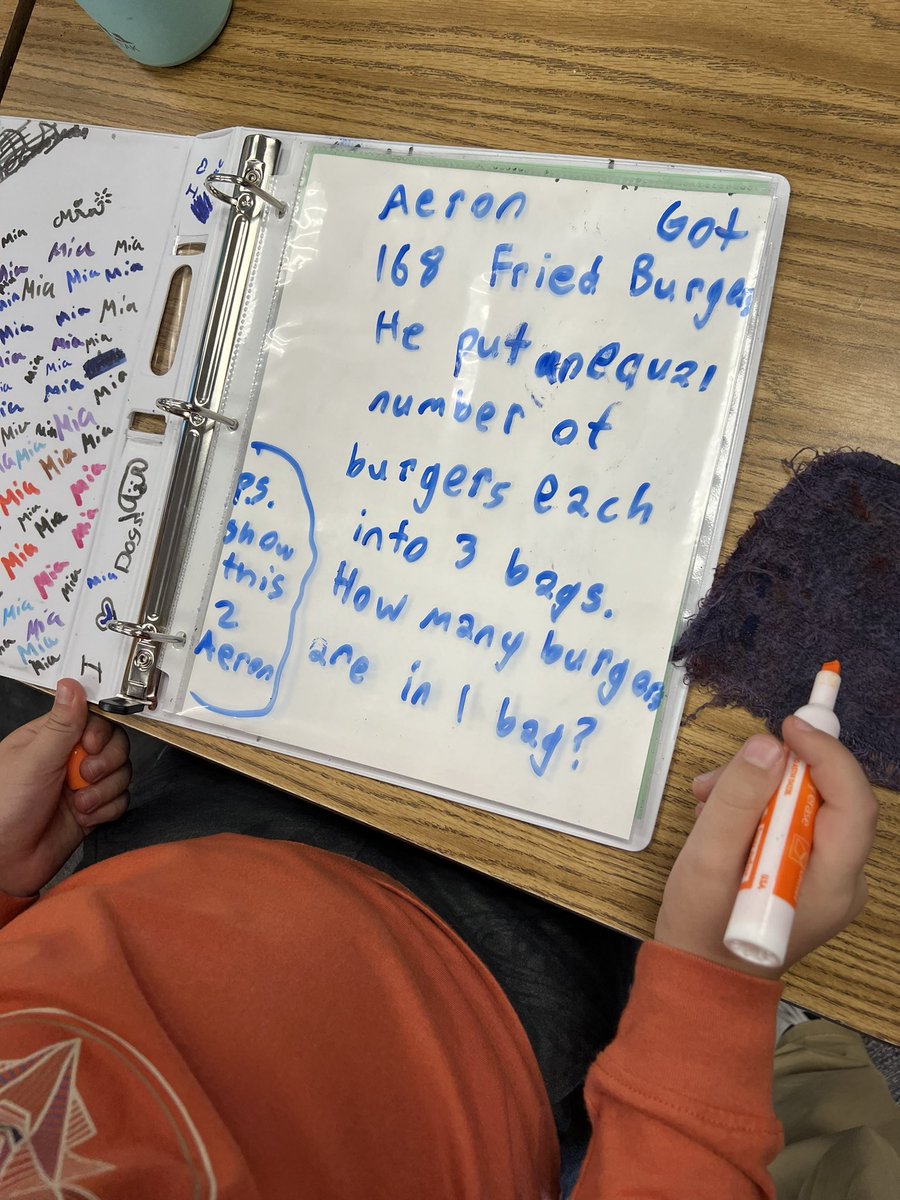 Mia
Mia
Mia Mia Mia
Mia Mia Mia Mia
Mia Mia Mia
Mia Mia
Mia Mia
Mia Mia
Mia Mia Mia
Mia Mia Mia
Mia Mia
Mia Mia
Mia Mia
Mia Mia
Mia Mia
Mia
Mia
Mia
I
Aeron Got
168 Fried Burge
He put an equal
number of
burgers each
into 3 bags.
How many burgers
are in 1 bag?
P.S.
show
this
2
Aeron
USA